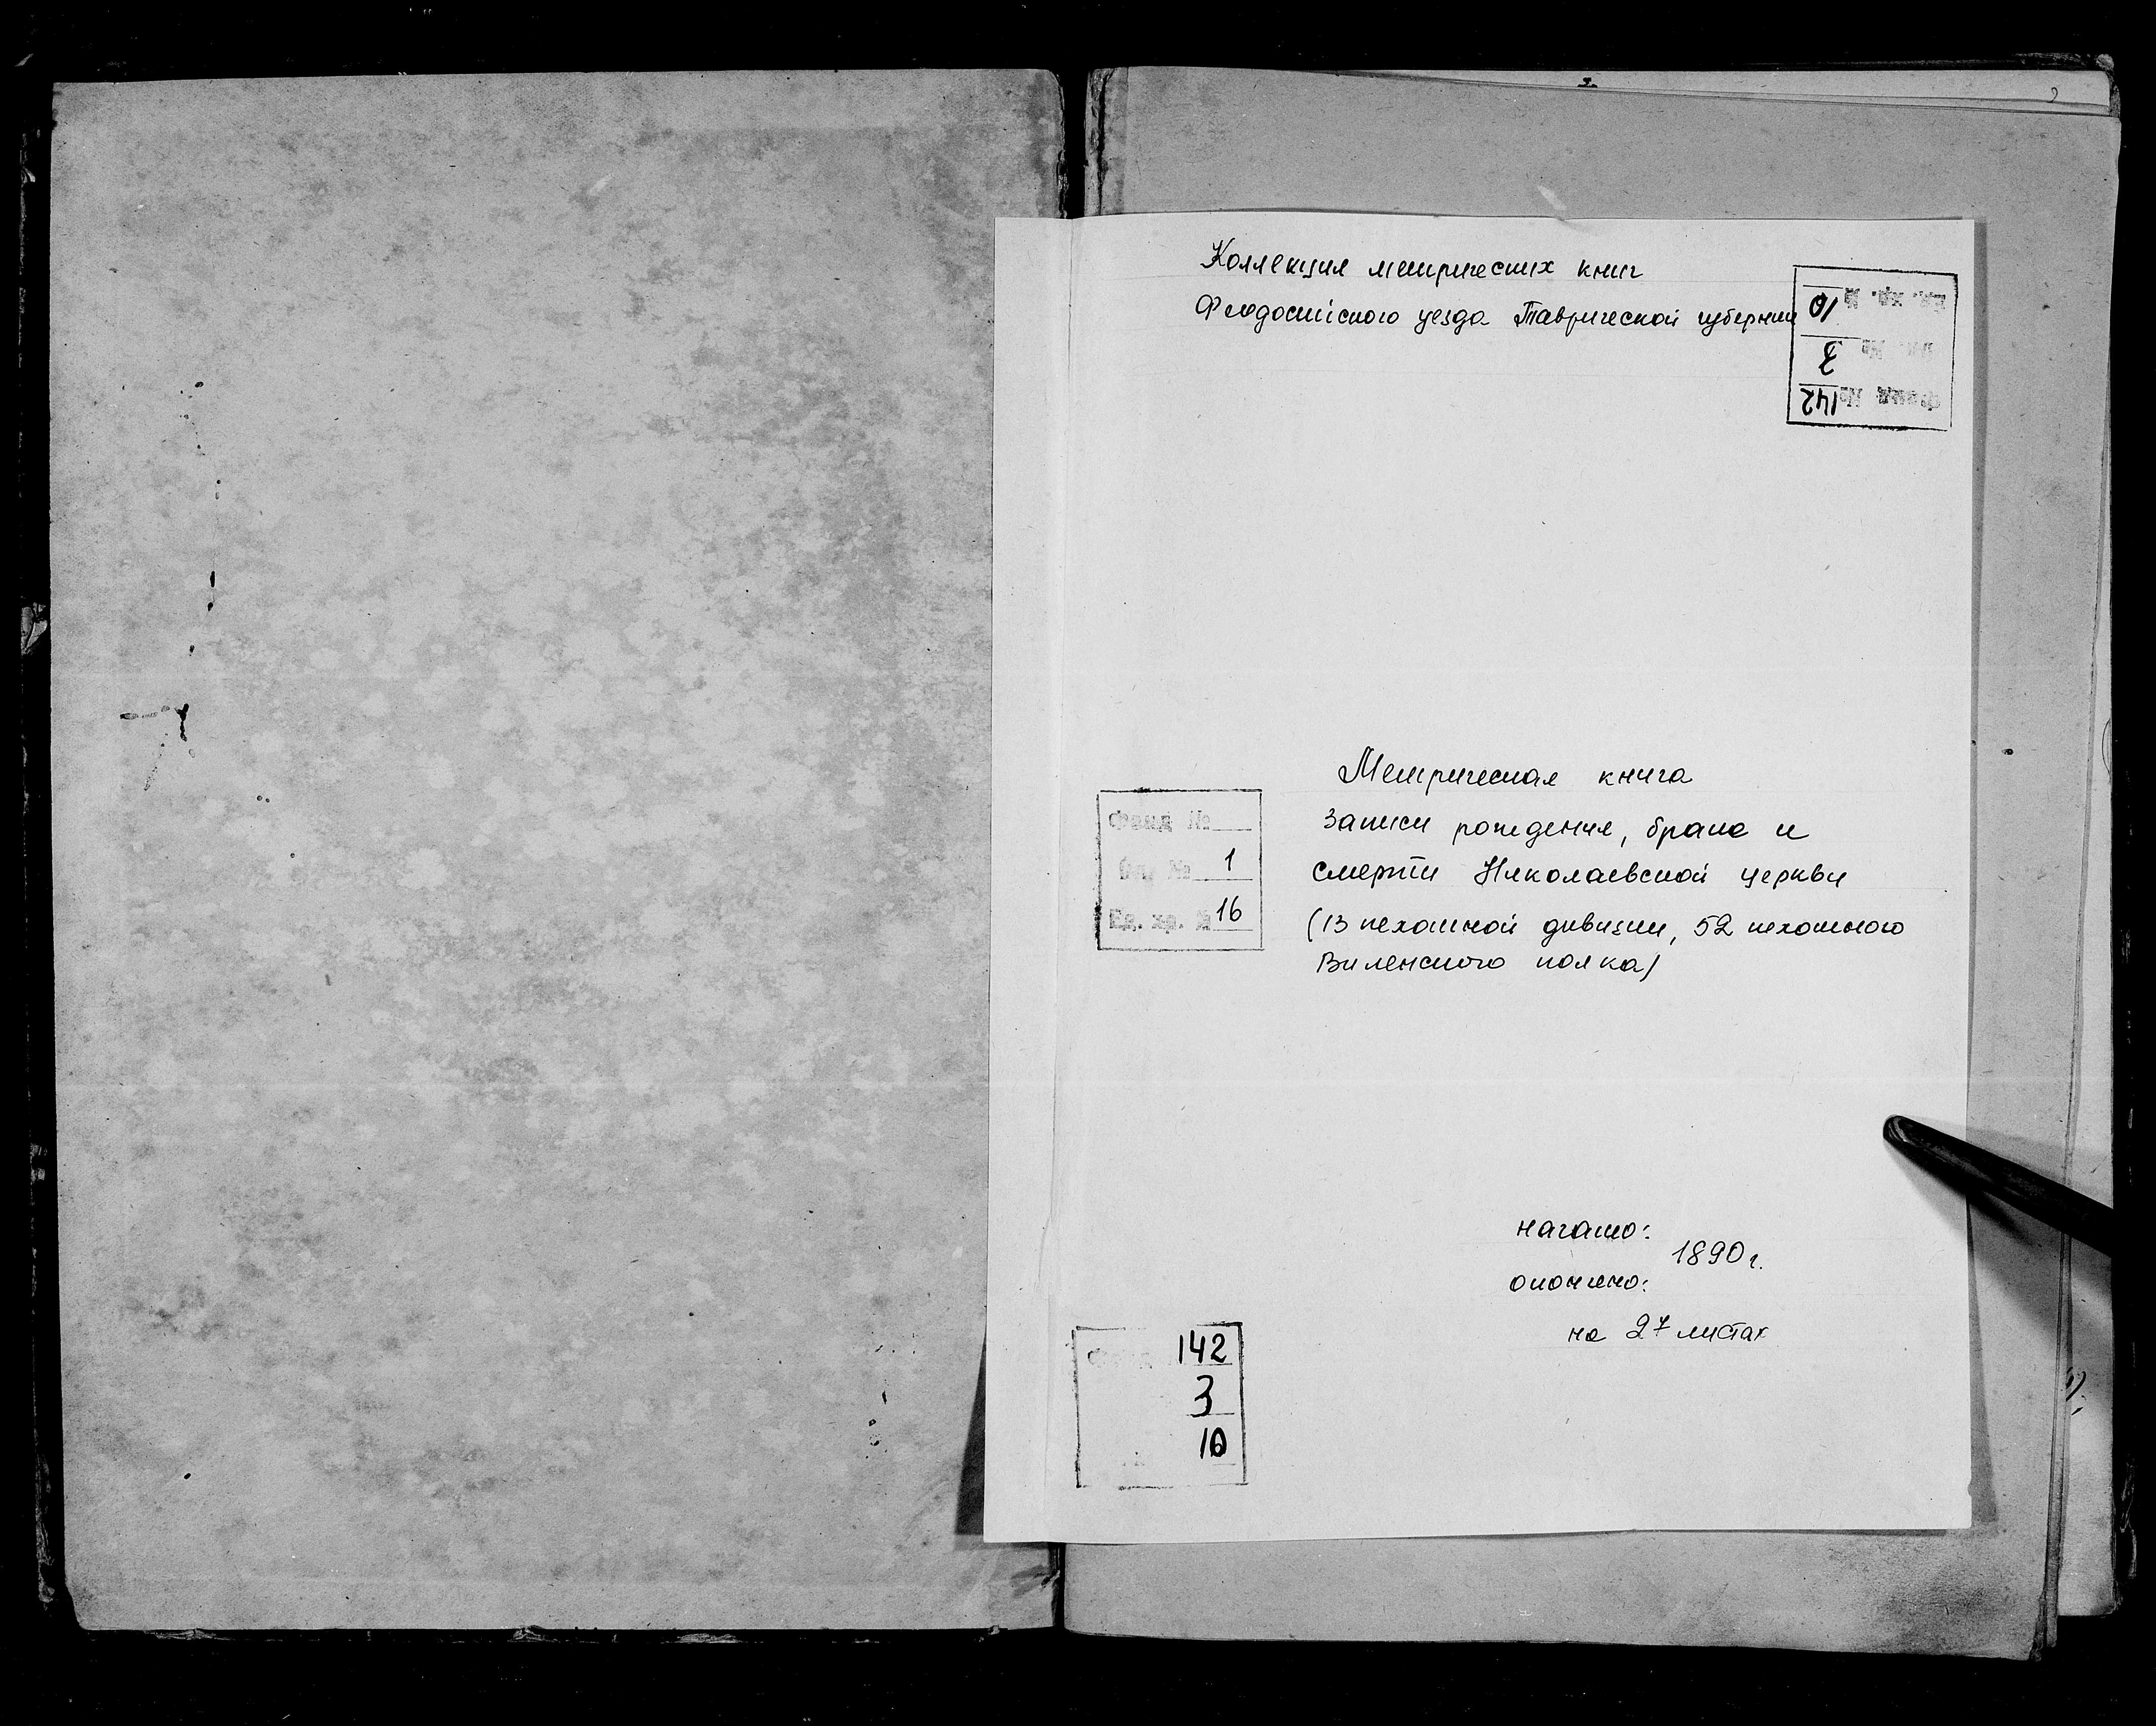 Коллекция метрических книг
Феодосийского уезда Таврической губернии
Ед. хр. № 10
Оп. № 3
Фонд № 142
Метрическая книга
записи рождения, брака и
смерти Николаевской церкви
(13 пехотной дивизии, 52 пехотного
Виленского полка)
Фонд №
Оп. № 1
Ед. хр. № 16
начато:
1890 г.
окончено:
на 27 листах
142
3
10